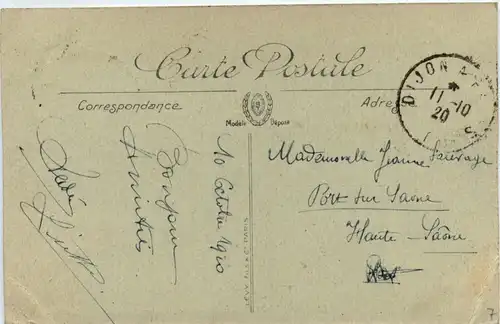 Carte Postale
Correspondance
Adresse
Modèle Déposé
DIJON
11 -10
20
10 Octobre 1920
Bonjour
Amitiés
LÉVY FILS & Cie PARIS
Mademoiselle Jeanne Sauvage
Port sur Saone
Haute-Saône
7